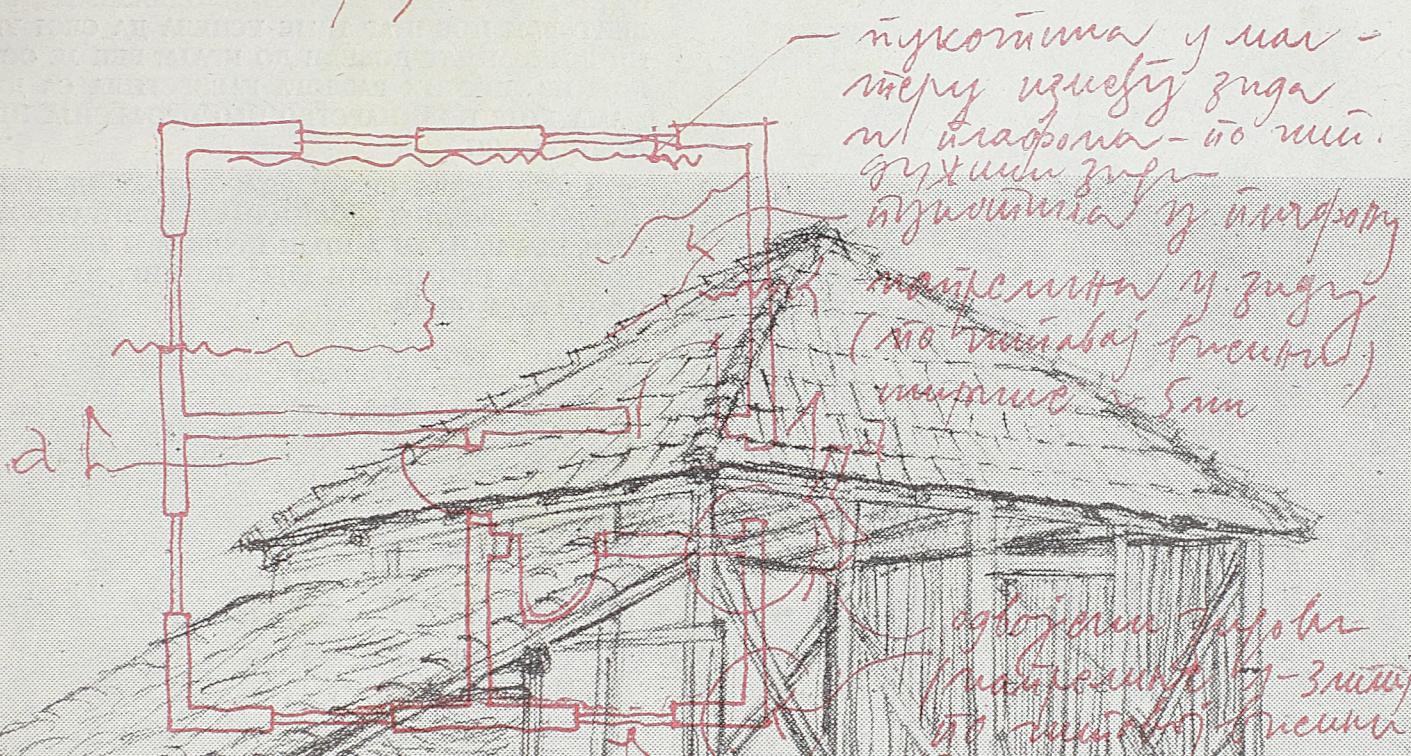 пукотина у мал-
теру између зида
и плафона - по чит.
дужини зида
пукотина у плафону
напрслина у зиду
(по читавој висини)
ширине ~ 5 mm
a
одвојени зидови
(напрслине у зиду
по читавој висини